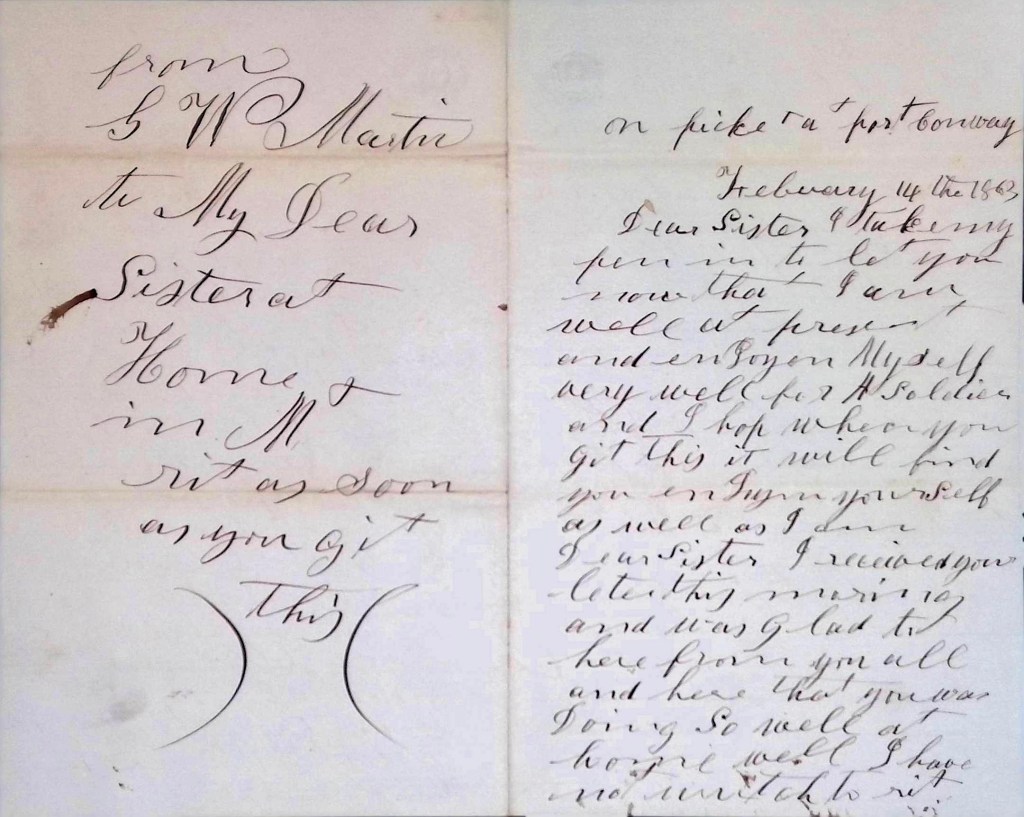 from
G W Martin
to My Dear
Sister at
Home
in M
rit as soon
as you git
this
on picket at port Conway
Febuary 14 the 1863
Dear Sister I take my
pen in to let you
now that I am
well at present
and enJoyen My self
very well for A Soldier
and I hop when you
git this it will find
you enJuyn yourself
as well as I am
Dear Sister I received your
leter this morning
and was Glad to
here from you all
and here that you was
Doing So well at
home well I have
not much to rit